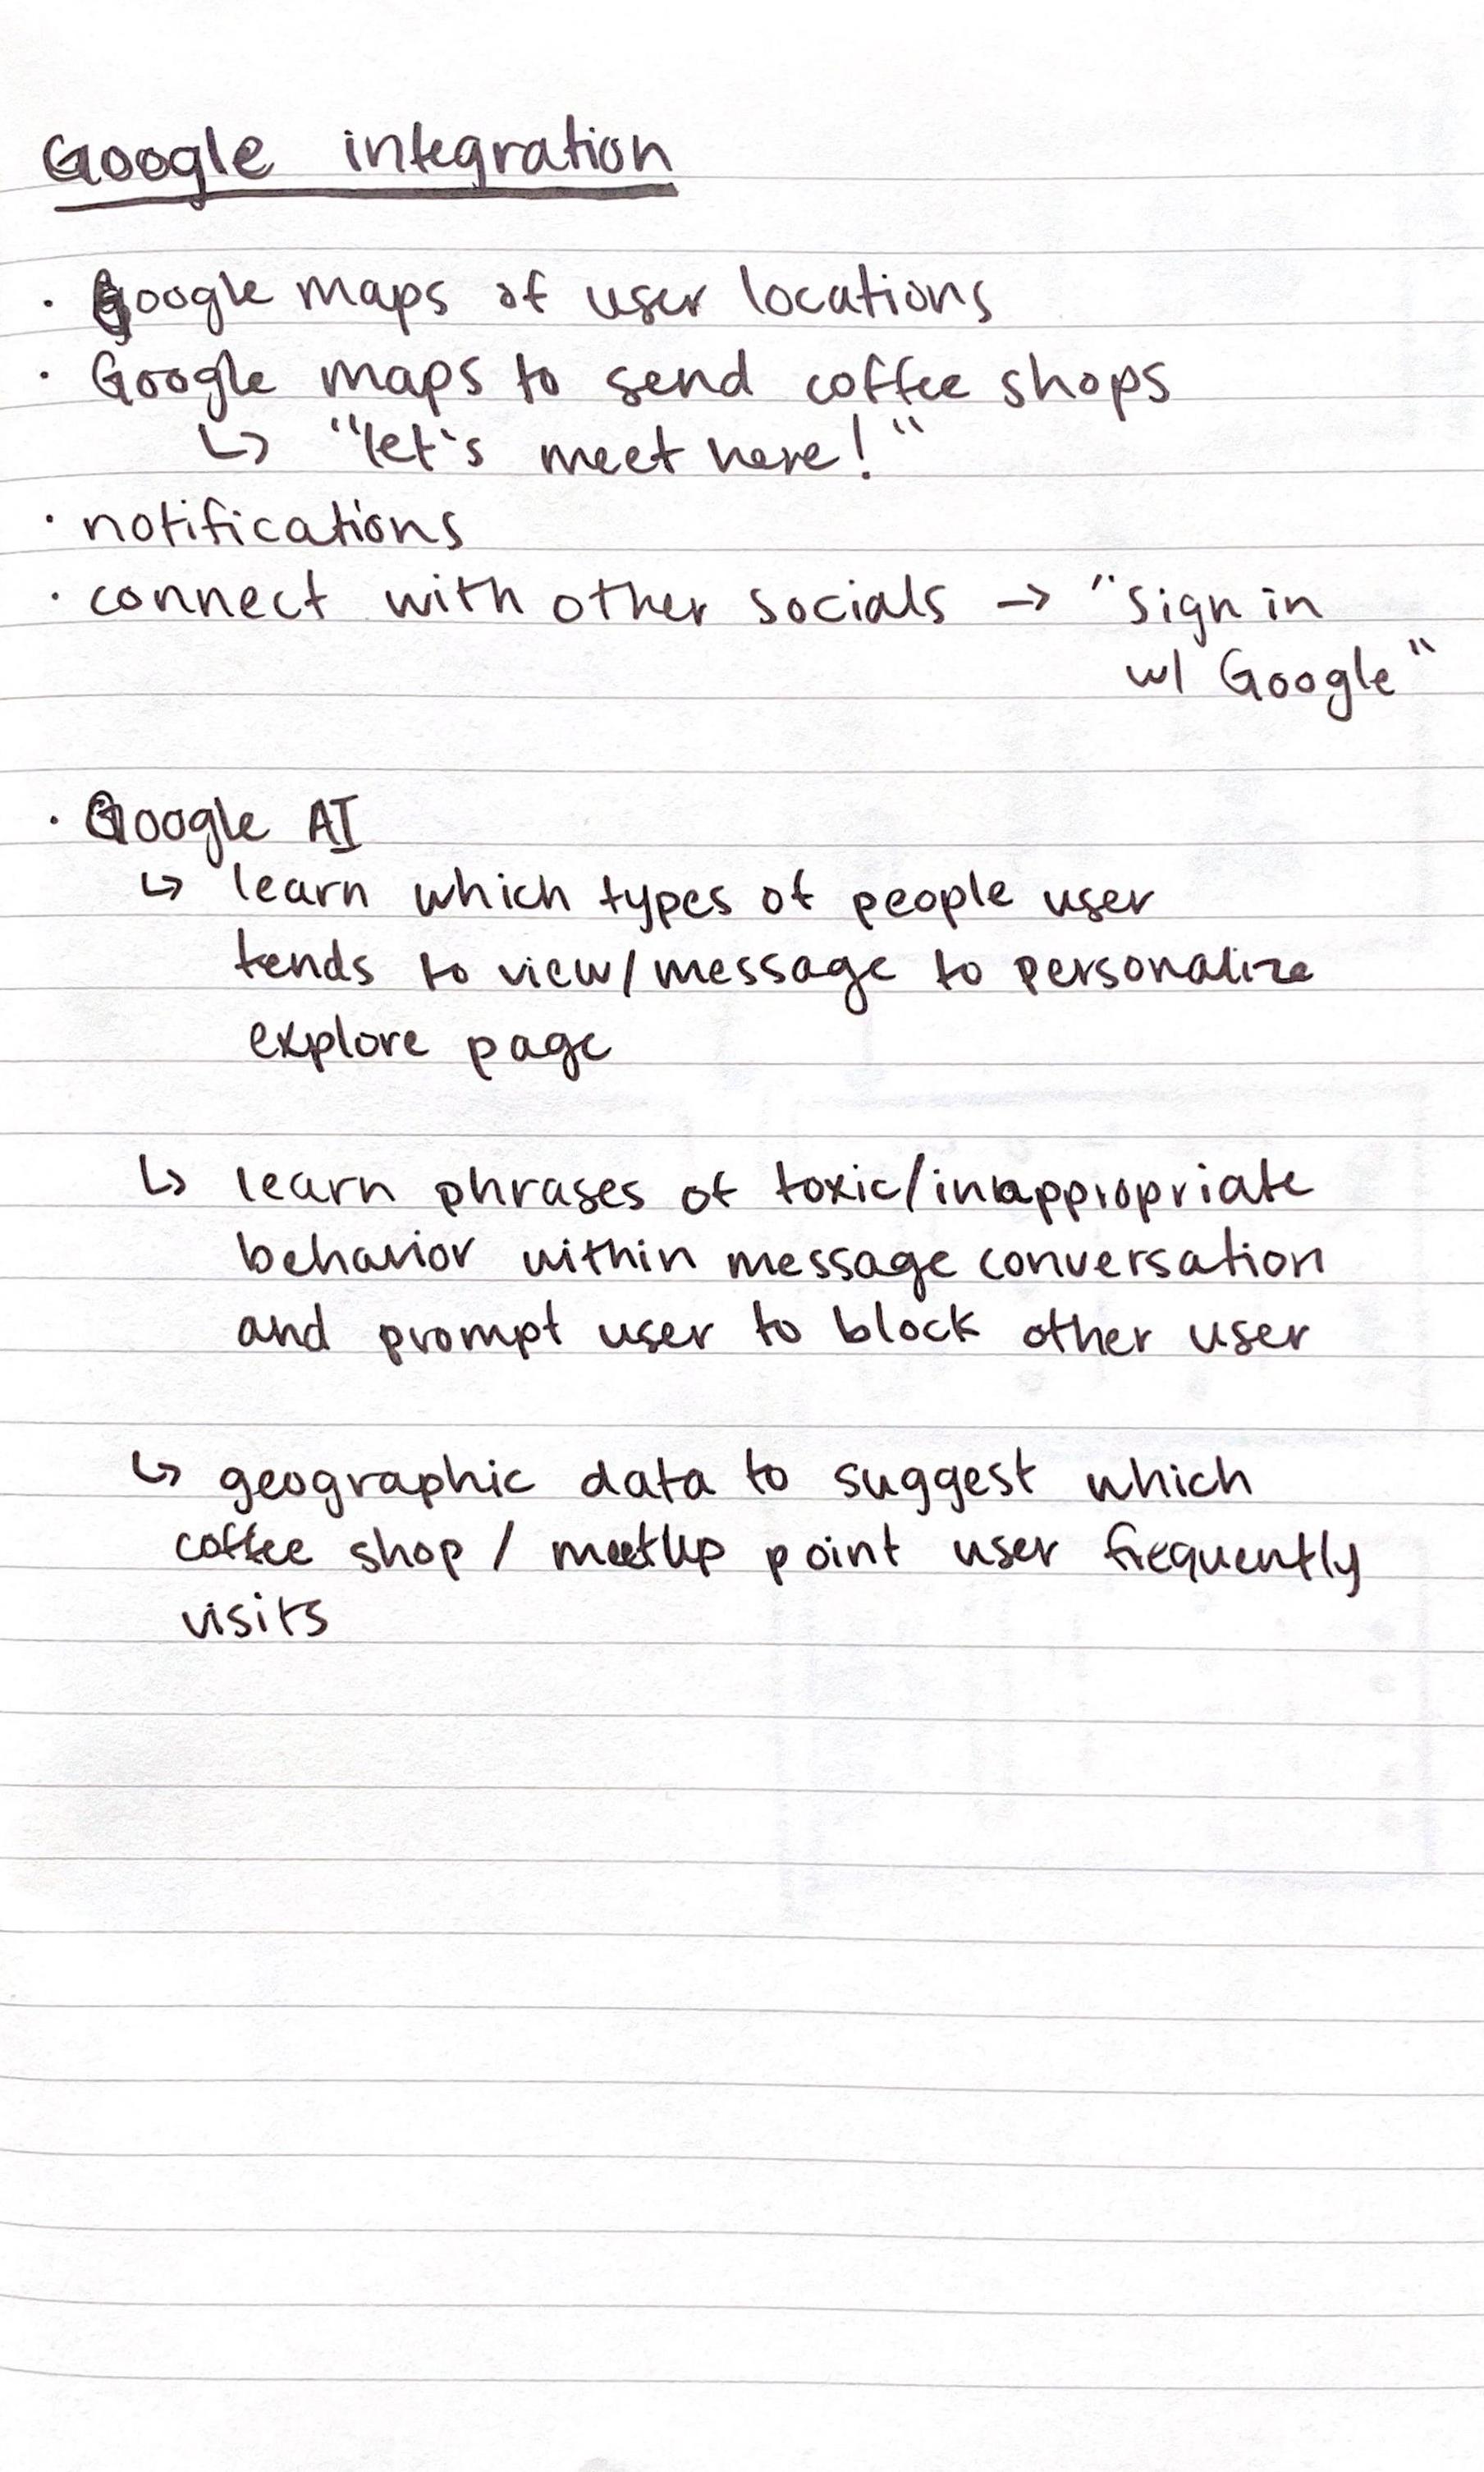 Google integration
· Google maps of user locations
· Google maps to send coffee shops
↳ "let's meet here!"
· notifications
· connect with other socials → "sign in
w/ Google"
· Google AI
↳ learn which types of people user
tends to view/message to personalize
explore page
↳ learn phrases of toxic/inappropriate
behavior within message conversation
and prompt user to block other user
↳ geographic data to suggest which
coffee shop / meetup point user frequently
visits